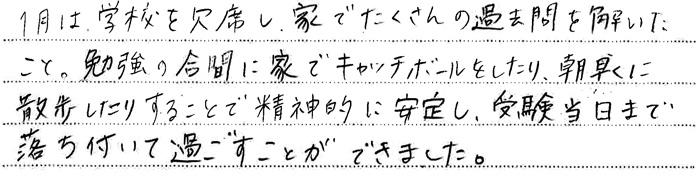 1月は、学校を欠席し、家でたくさんの過去問を解いた
こと。勉強の合間に家でキャッチボールをしたり、朝早くに
散歩したりすることで精神的に安定し、受験当日まで
落ち付いて過ごすことができました。